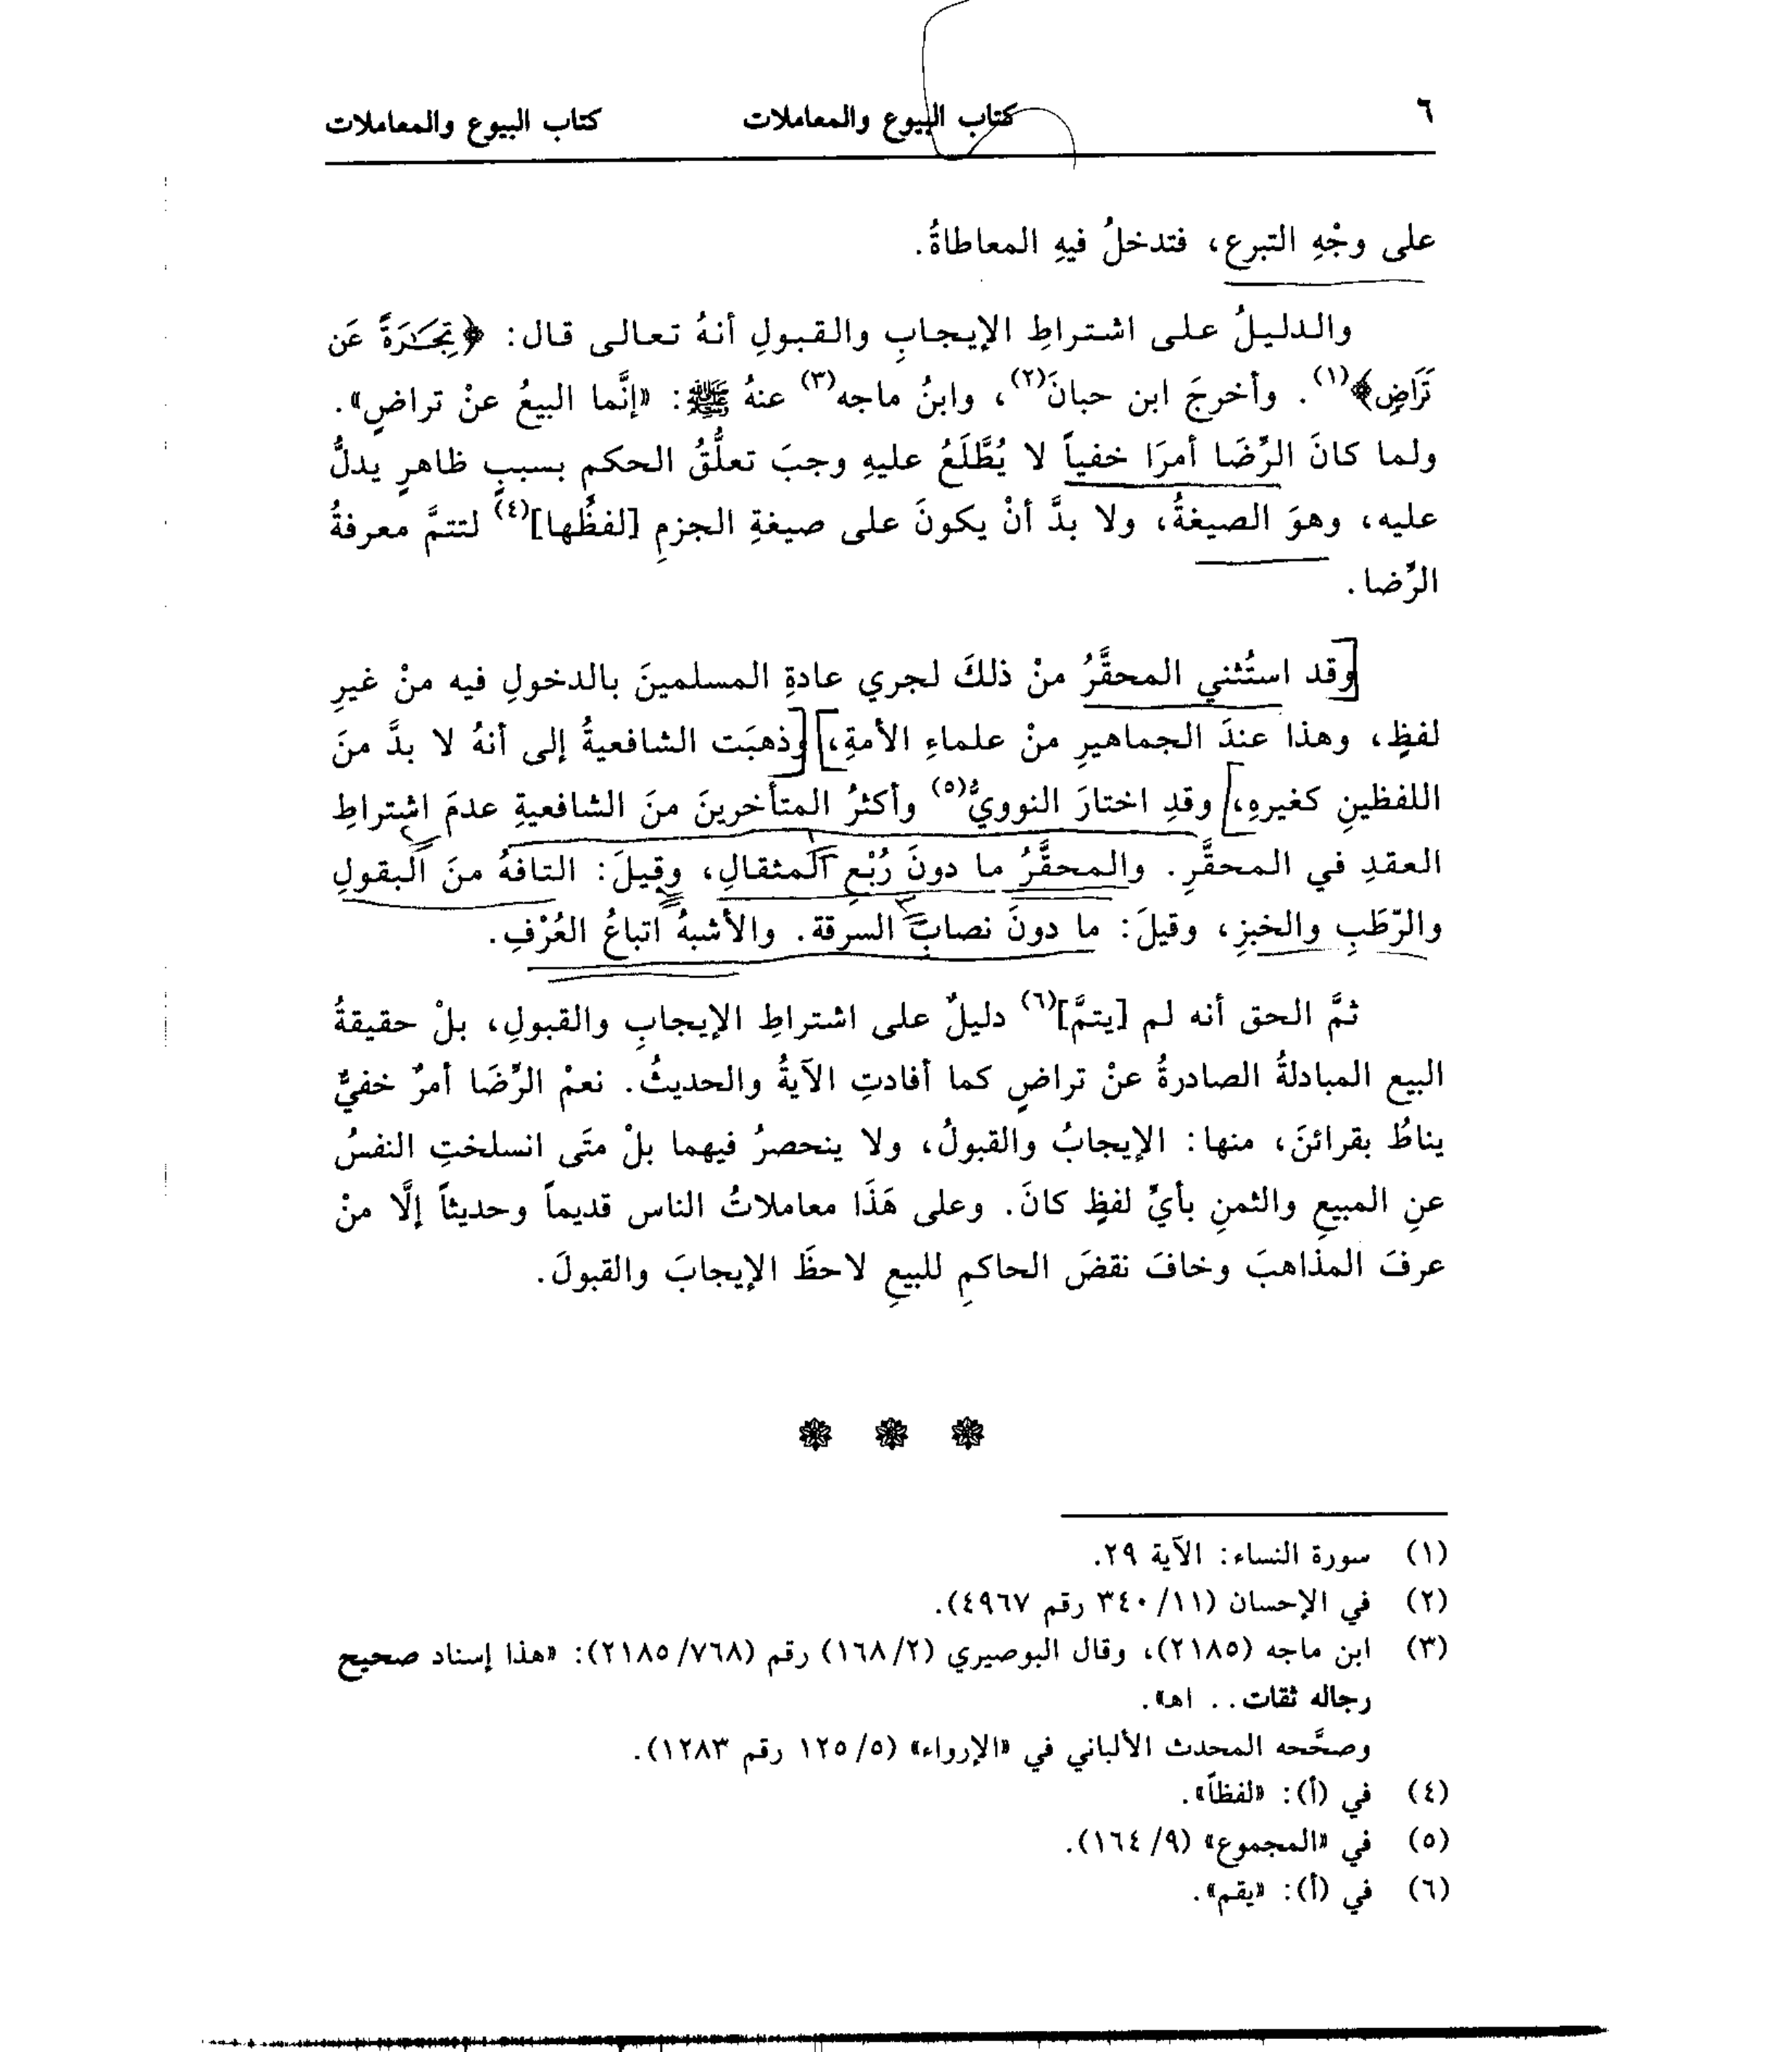 ٦ كتاب البيوع والمعاملات كتاب البيوع والمعاملات
على وجْهِ التبرع، فتدخلُ فيهِ المعاطاةُ.
والدليلُ على اشتراطِ الإيجابِ والقبولِ أنهُ تعالى قال: ﴿تِجَـٰرَةً عَن
تَرَاضٍ﴾(١). وأخرجَ ابن حبانَ(٢)، وابنُ ماجه(٣) عنهُ ﷺ: «إنَّما البيعُ عنْ تراضٍ».
ولما كانَ الرِّضَا أمرَا خفياً لا يُطَّلَعُ عليهِ وجبَ تعلُّقُ الحكمِ بسببٍ ظاهرٍ يدلُّ
عليه، وهوَ الصيغةُ، ولا بدَّ أنْ يكونَ على صيغةِ الجزمِ [لفظُها](٤) لتتمَّ معرفةُ
الرِّضا.
وقد استُثني المحقَّرُ منْ ذلكَ لجري عادةِ المسلمينَ بالدخولِ فيه منْ غيرِ
لفظٍ، وهذا عندَ الجماهيرِ منْ علماءِ الأمةِ، وذهبَت الشافعيةُ إلى أنهُ لا بدَّ منَ
اللفظينِ كغيرهِ، وقدِ اختارَ النوويُّ(٥) وأكثرُ المتأخرينَ منَ الشافعيةِ عدمَ اشتراطِ
العقدِ في المحقَّرِ. والمحقَّرُ ما دونَ رُبْعِ المثقالِ، وقيلَ: التافهُ منَ البقولِ
والرّطَبِ والخبزِ، وقيلَ: ما دونَ نصابِ السرقة. والأشبهُ اتباعُ العُرْفِ.
ثمَّ الحق أنه لم [يتمَّ](٦) دليلٌ على اشتراطِ الإيجابِ والقبولِ، بلْ حقيقةُ
البيع المبادلةُ الصادرةُ عنْ تراضٍ كما أفادتِ الآيةُ والحديثُ. نعمْ الرِّضَا أمرٌ خفيٌّ
يناطُ بقرائنَ، منها: الإيجابُ والقبولُ، ولا ينحصرُ فيهما بلْ متَى انسلختِ النفسُ
عنِ المبيعِ والثمنِ بأيِّ لفظٍ كانَ. وعلى هَذَا معاملاتُ الناس قديماً وحديثاً إلَّا منْ
عرفَ المذاهبَ وخافَ نقضَ الحاكمِ للبيعِ لاحظَ الإيجابَ والقبولَ.
(١) سورة النساء: الآية ٢٩.
(٢) في الإحسان (١١/ ٣٤٠ رقم ٤٩٦٧).
(٣) ابن ماجه (٢١٨٥)، وقال البوصيري (٢/ ١٦٨) رقم (٧٦٨/ ٢١٨٥): «هذا إسناد صحيح
رجاله ثقات.. اهـ».
وصحَّحه المحدث الألباني في «الإرواء» (٥/ ١٢٥ رقم ١٢٨٣).
(٤) في (أ): «لفظاً».
(٥) في «المجموع» (٩/ ١٦٤).
(٦) في (أ): «يقم».